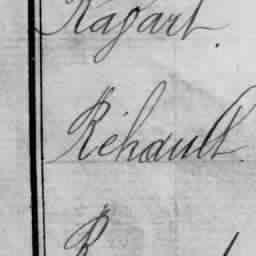 Ragart.
Réhault.